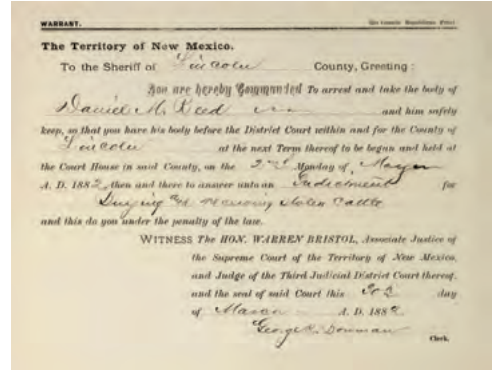 WARRANT.
The Territory of New Mexico.
To the Sheriff of Lincoln County, Greeting:
You are hereby Commanded To arrest and take the body of
Daniel M. Reed and him safely
keep, so that you have his body before the District Court within and for the County of
Lincoln at the next Term thereof to be began and held at
the Court House in said County, on the 2nd Monday of
A. D. 1882, then and there to answer unto an Indictment for
Buying stolen Cattle
and this do you under the penalty of the law.
WITNESS The HON. WARREN BRISTOL, Associate Justice of
the Supreme Court of the Territory of New Mexico,
and Judge of the Third Judicial District Court thereof,
and the seal of said Court this day
of A. D. 1882
George R. Bowman
Clerk.